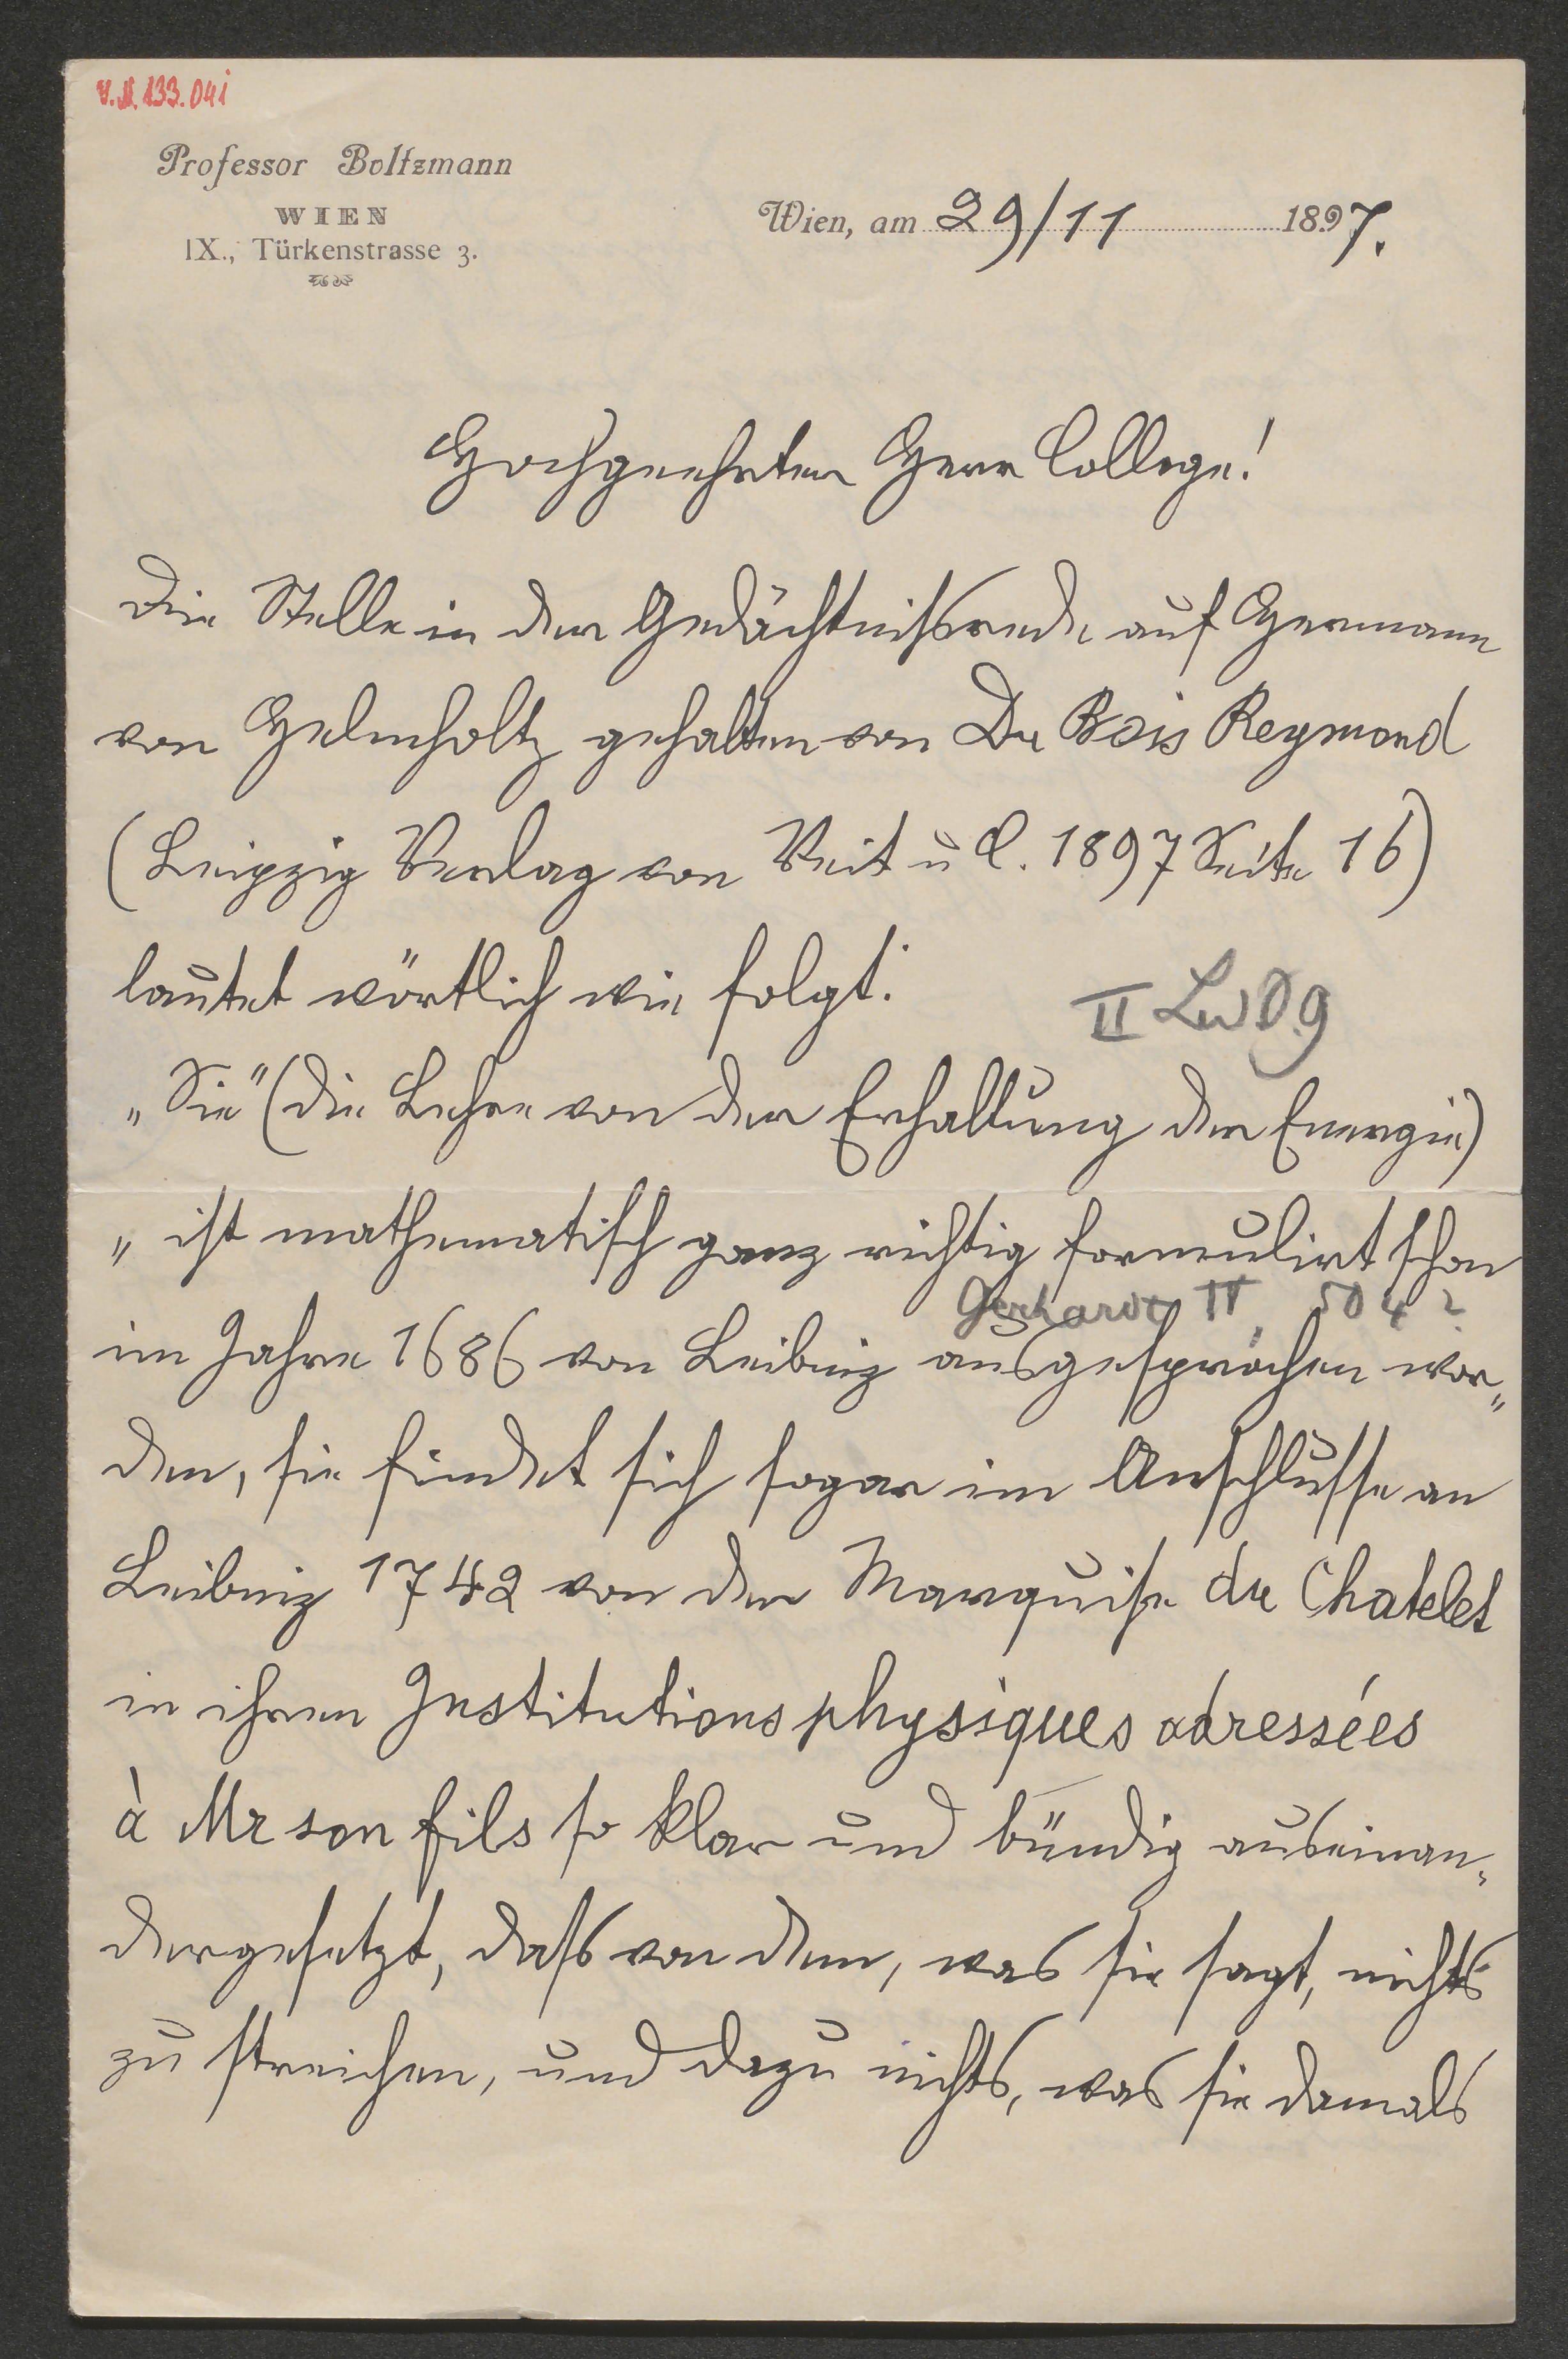 V.N. 133.041
Professor Boltzmann
WIEN
IX., Türkenstrasse 3.
Wien, am 29/11 1897.
Hochgeehrter Herr College!
Die Stelle in der Gedächtnißrede auf Hermann
von Helmholtz gehalten von Du Bois Reymond
(Leipzig Verlag von Veit u C. 1897 Seite 16)
lautet wörtlich wie folgt:
II
„Sie" (die Lehre von der Erhaltung der Energie)
„ist mathematisch ganz richtig formulirt schon
Gerhardt II, 504?
im Jahre 1686 von Leibniz ausgesprochen wor„
den, sie findet sich sogar im Anschlusse an
Leibniz 1742 von der Marquise du Chatelet
in ihren Institutions physiques adressées
à Mr son fils so klar und bündig auseinan„
dergesetzt, daß von dem, was sie sagt, nichts
zu streichen, und dazu nichts, was sie damals